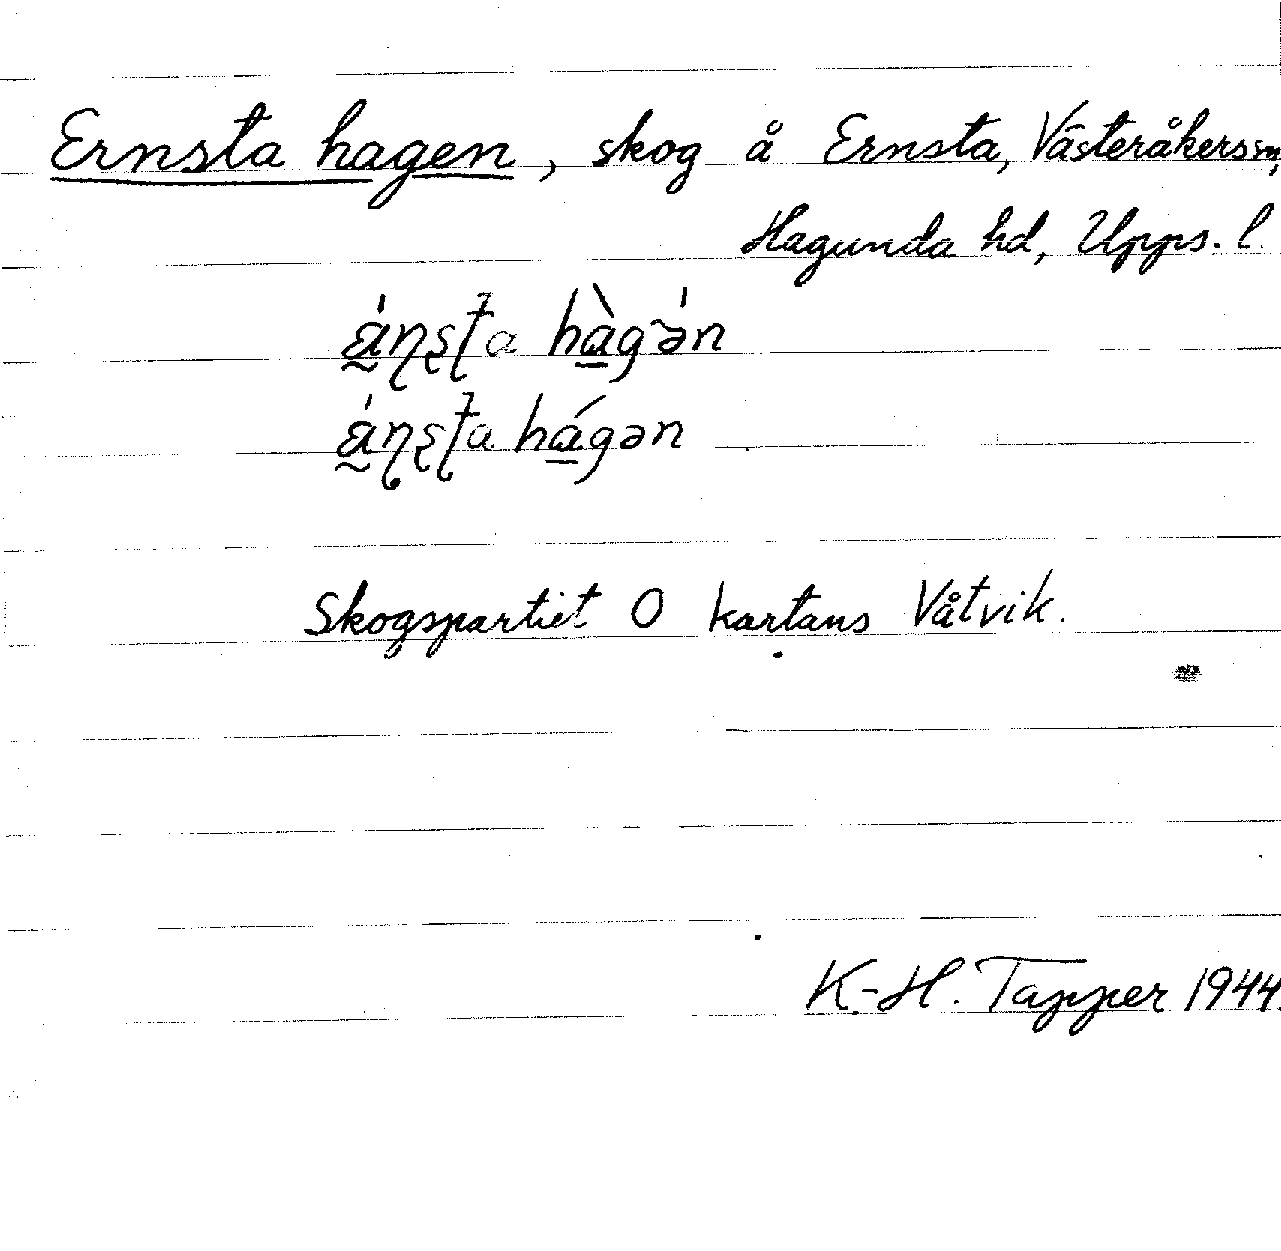 Ernsta hagen, skog å Ernsta, Västeråkers sn,
Hagunda hd, Upps. l.
Skogspartiet O kartans Våtvik.
K.-H. Tapper 1944.